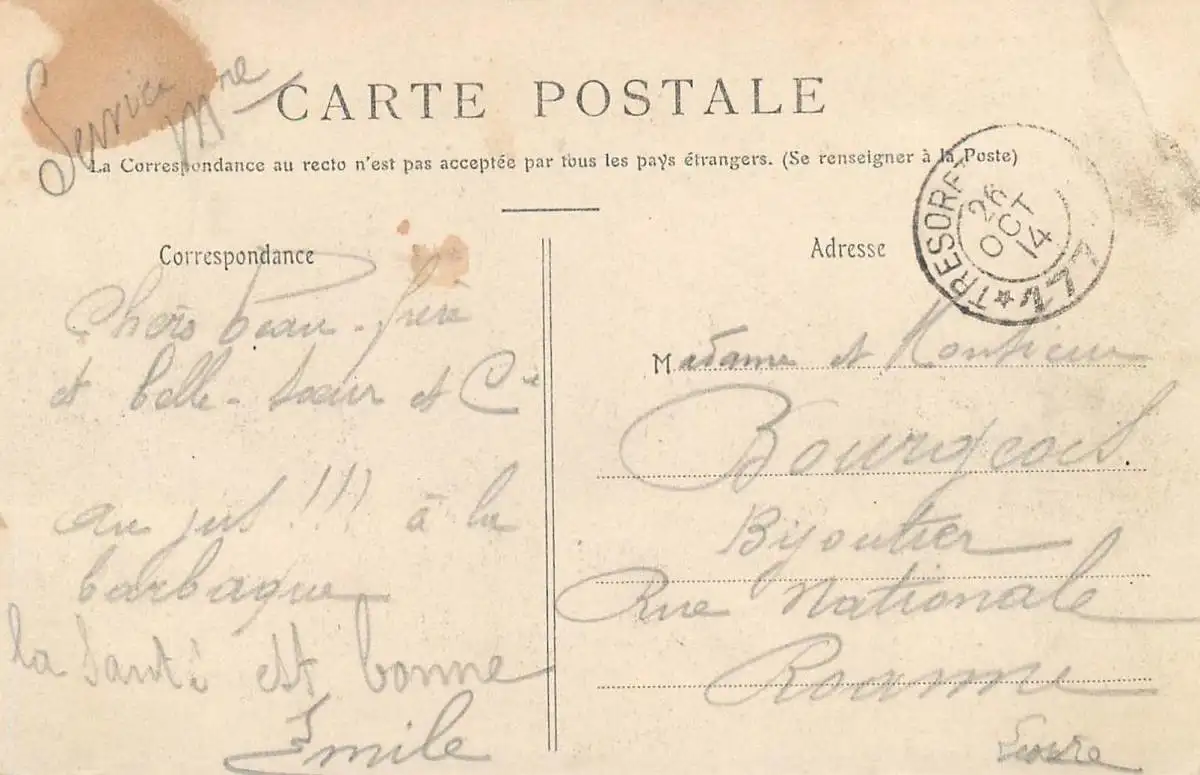 Service Mre
CARTE POSTALE
La Correspondance au recto n'est pas acceptée par tous les pays étrangers. (Se renseigner à la Poste)
TRESOR ET
26
OCT
14
77
Correspondance
Chers beau-frère
et belle-soeur et Cie
au jus!!! à la
barbaque
la santé est bonne
Emile
Adresse
Madame et Monsieur
Bourgeois.
Bijoutier
Rue Nationale
Roanne
Loire